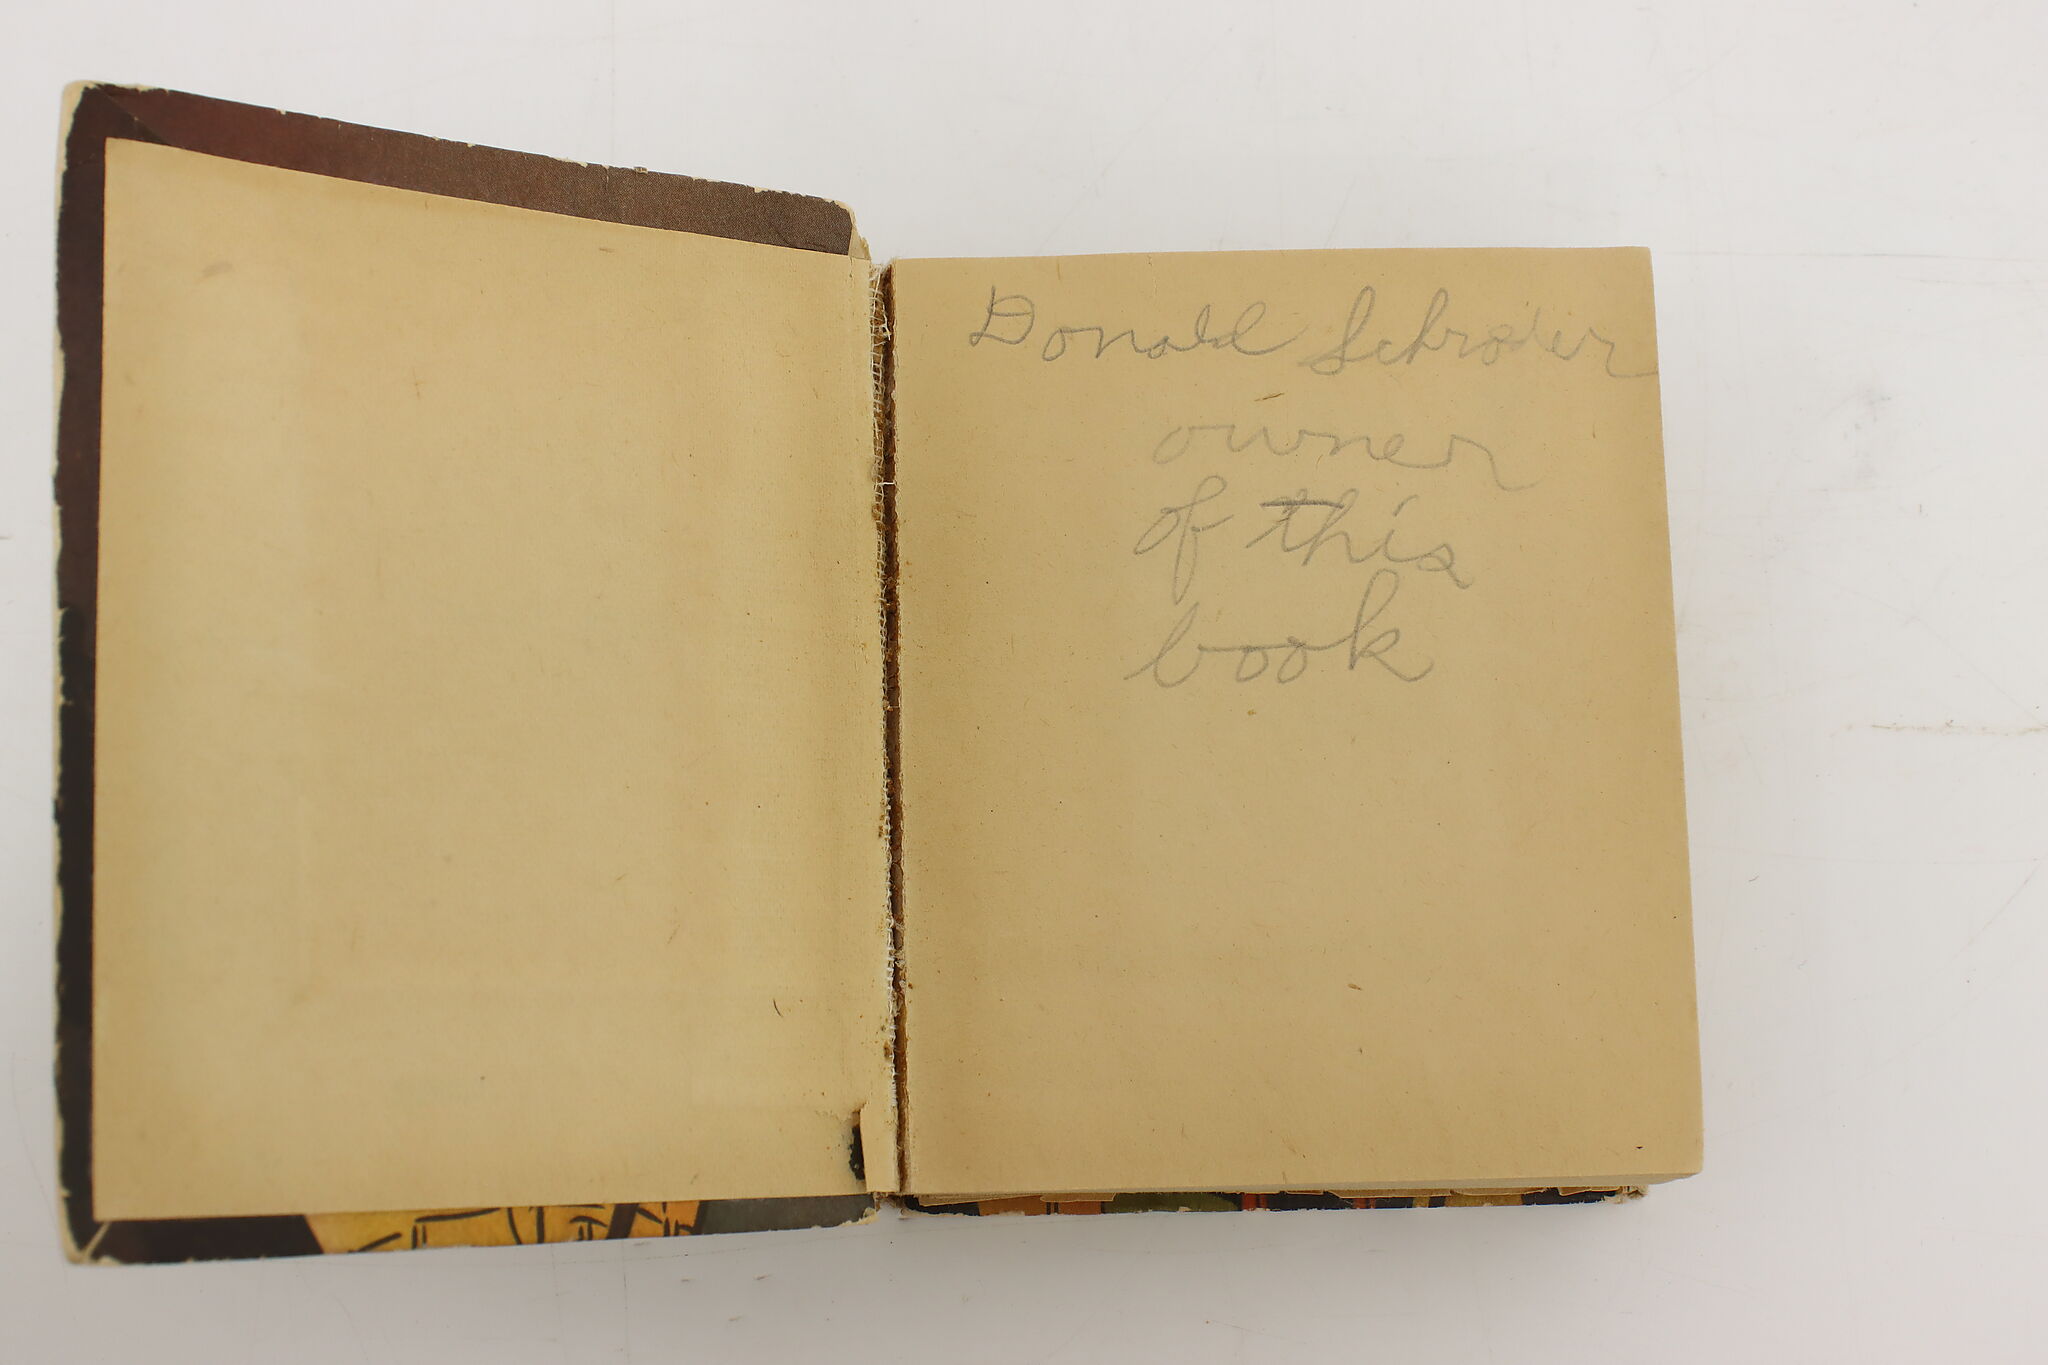 Donald Schroder
owner
of this
book